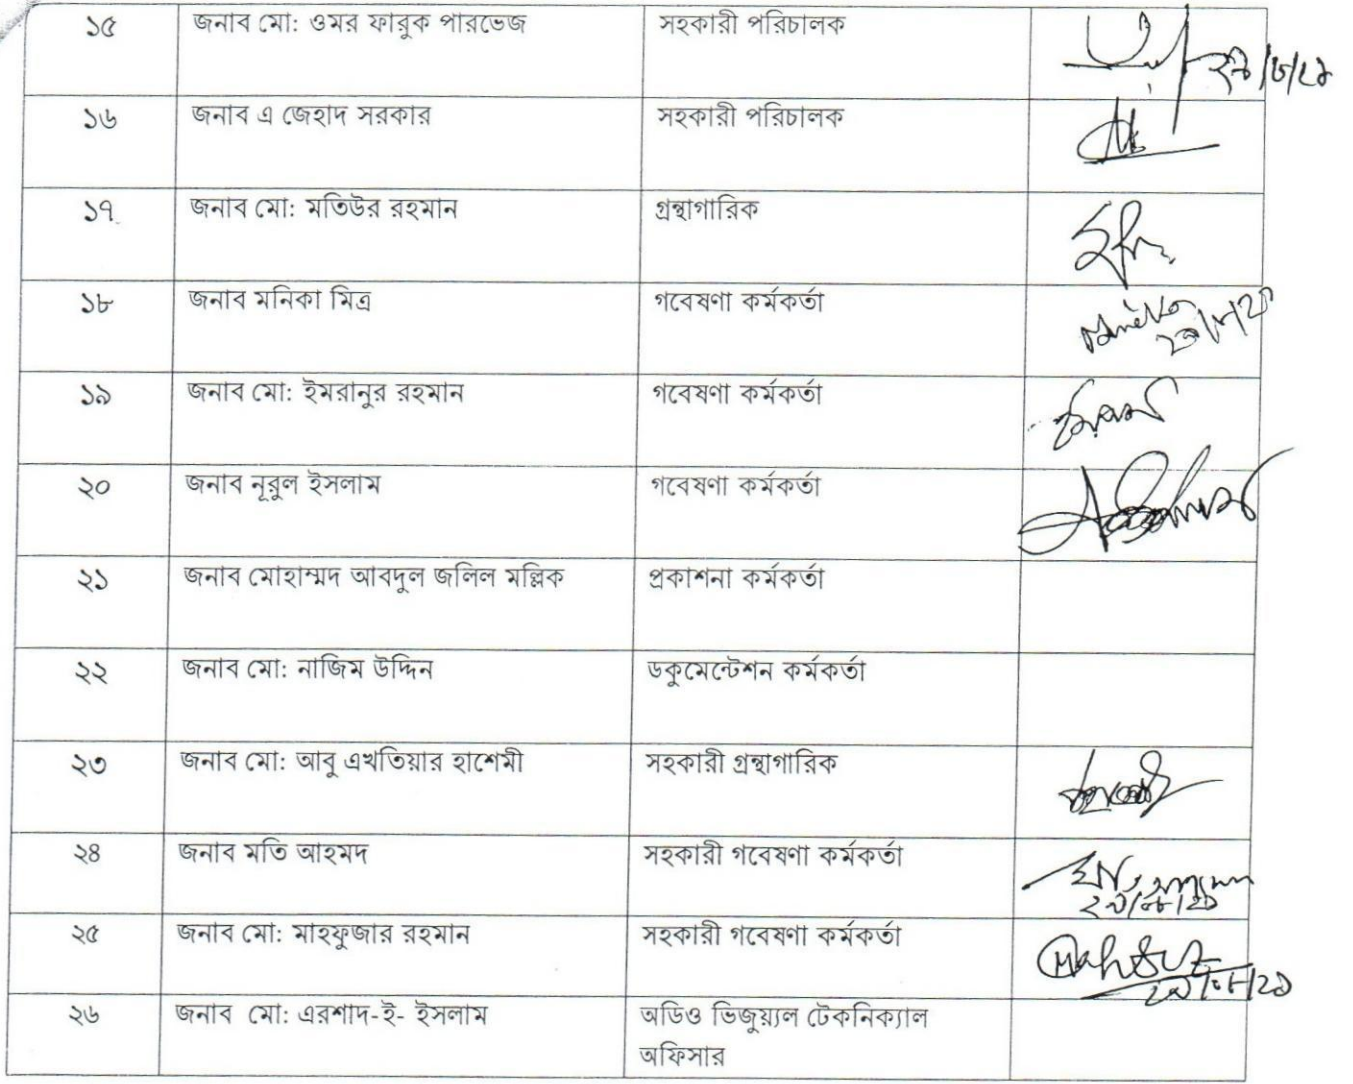 ১৫ জনাব মো: ওমর ফারুক পারভেজ সহকারী পরিচালক
১৬ জনাব এ জেহাদ সরকার সহকারী পরিচালক
১৭ জনাব মো: মতিউর রহমান গ্রন্থাগারিক
১৮ জনাব মনিকা মিত্র গবেষণা কর্মকর্তা
১৯ জনাব মো: ইমরানুর রহমান গবেষণা কর্মকর্তা
২০ জনাব নূরুল ইসলাম গবেষণা কর্মকর্তা
২১ জনাব মোহাম্মদ আবদুল জলিল মল্লিক প্রকাশনা কর্মকর্তা
২২ জনাব মো: নাজিম উদ্দিন ডকুমেন্টেশন কর্মকর্তা
২৩ জনাব মো: আবু এখতিয়ার হাশেমী সহকারী গ্রন্থাগারিক
২৪ জনাব মতি আহমদ সহকারী গবেষণা কর্মকর্তা
২৫ জনাব মো: মাহফুজার রহমান সহকারী গবেষণা কর্মকর্তা
২৬ জনাব মো: এরশাদ-ই- ইসলাম অডিও ভিজুয়্যল টেকনিক্যাল
অফিসার